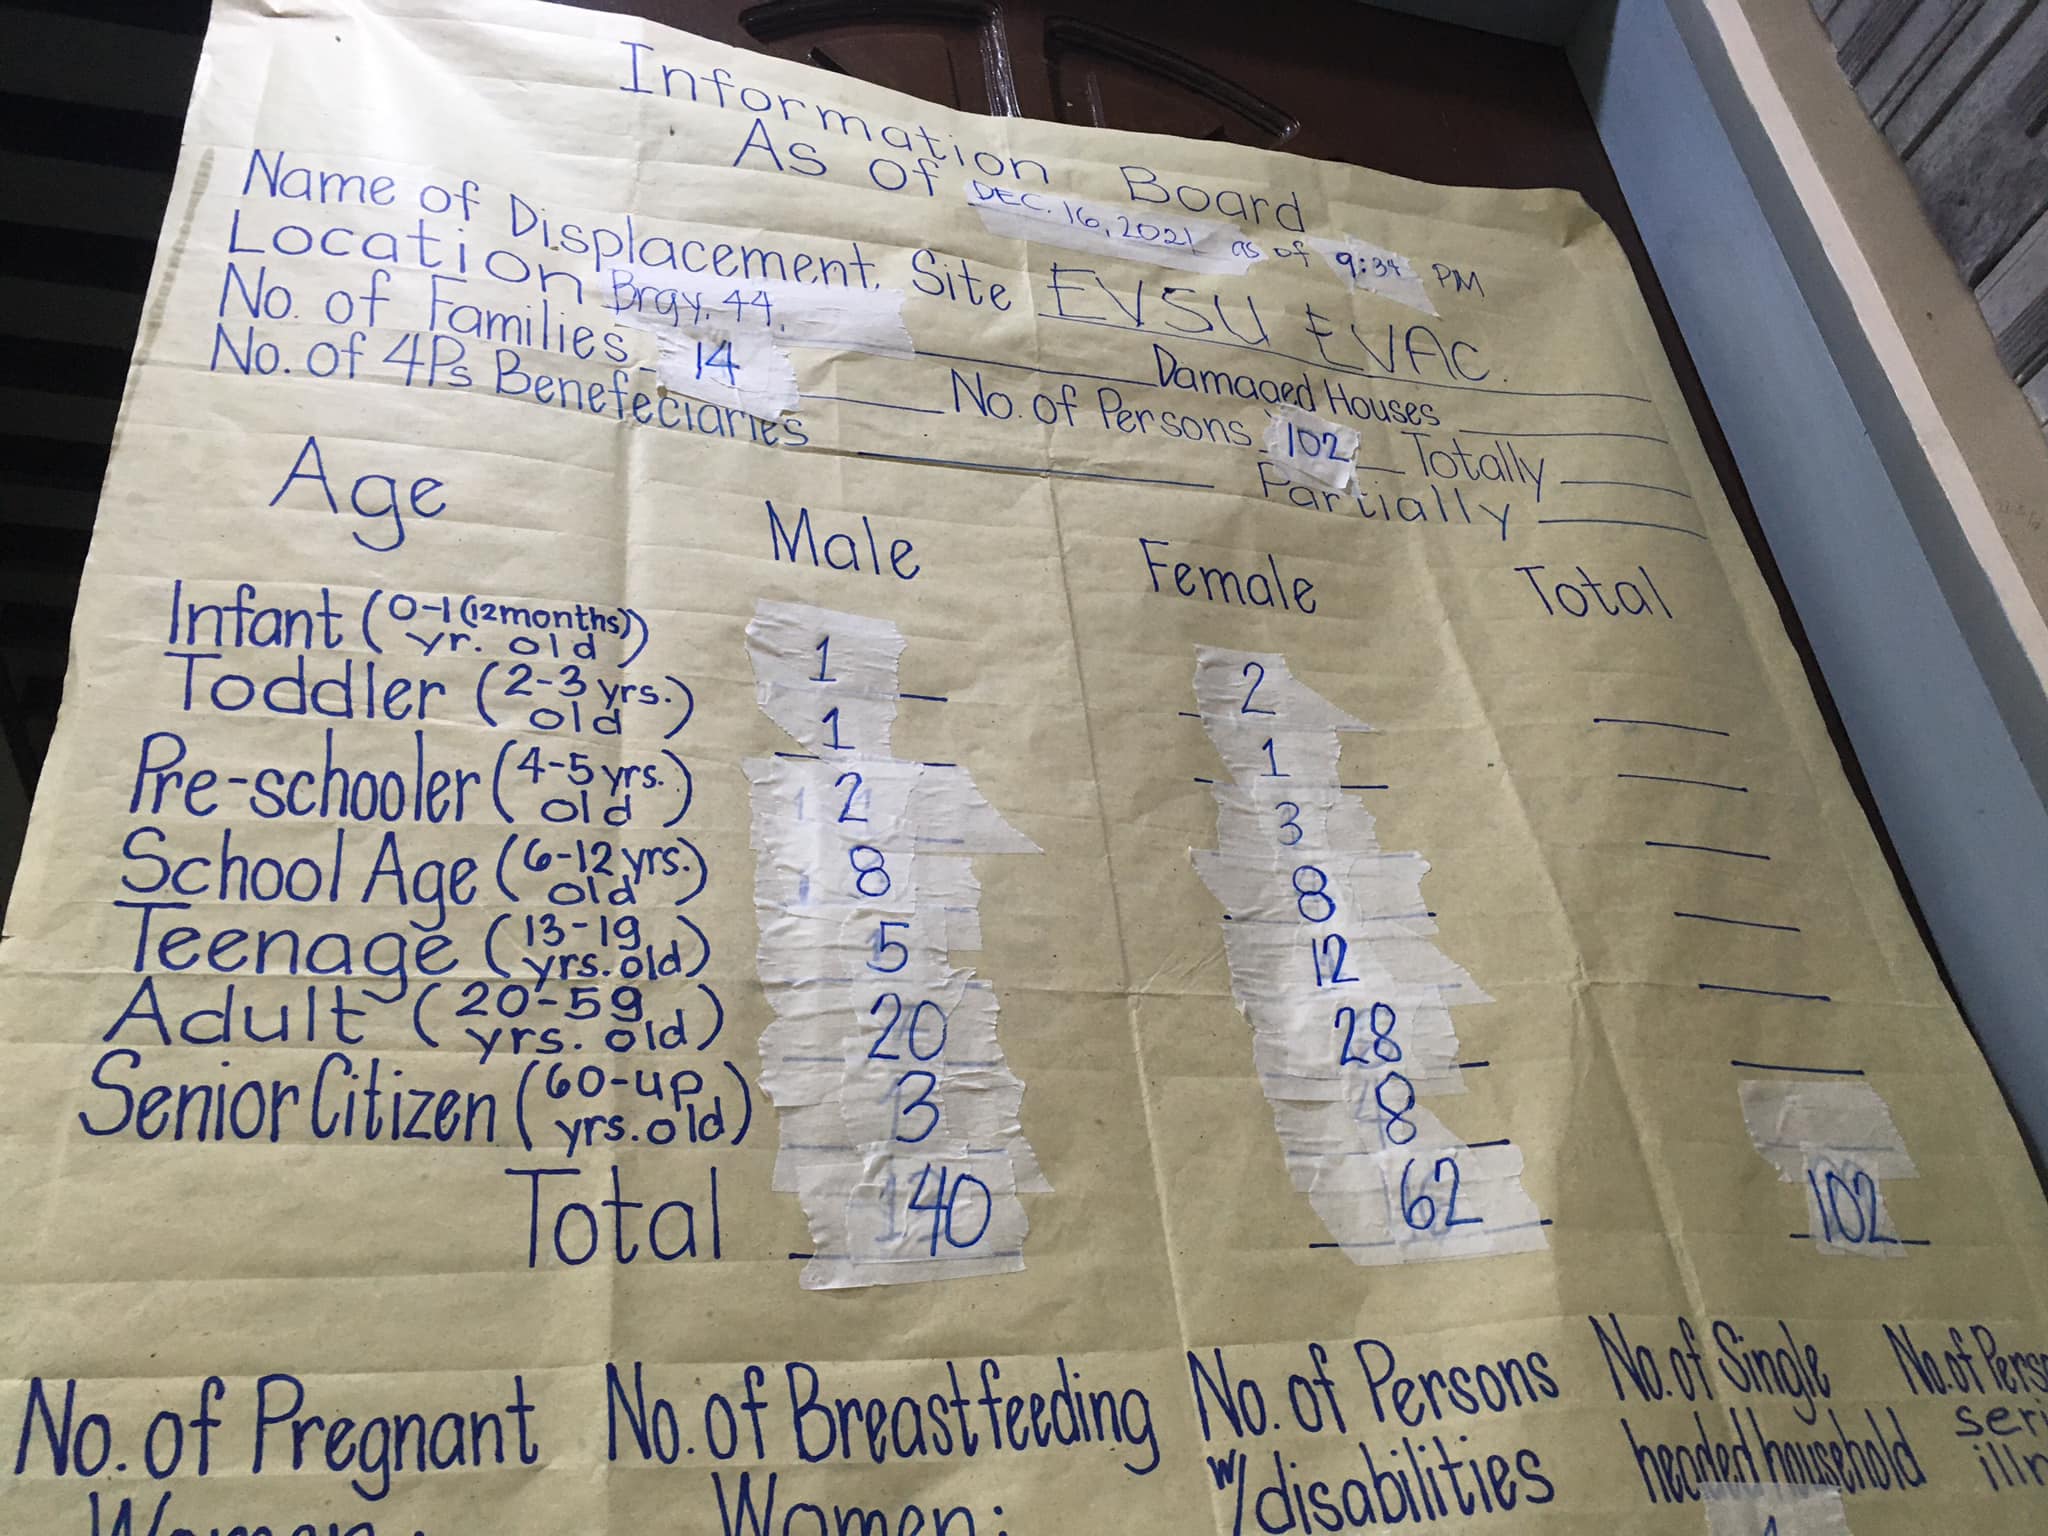 Information Board
As of DEC. 16, 2021 as of 9:34 PM
Name of Displacement Site EVSU EVAC.
Location Brgy. 44. Damaged Houses
No. of Families 14 No. of Persons 102 Totally
No. of 4Ps Benefeciaries Partially
Age Male Female Total
Infant (0-1 (12 months) yr. old) 1 2
Toddler (2-3 yrs. old) 1 1
Pre-schooler (4-5 yrs. old) 2 3
School Age (6-12 yrs. old) 8 8
Teenage (13-19 yrs. old) 5 12
Adult (20-59 yrs. old) 20 28
Senior Citizen (60-up yrs. old) 3 8
Total 40 62 102
No. of Pregnant No. of Breastfeeding No. of Persons No. of Single No. of
Women: Women: w/disabilities headed household